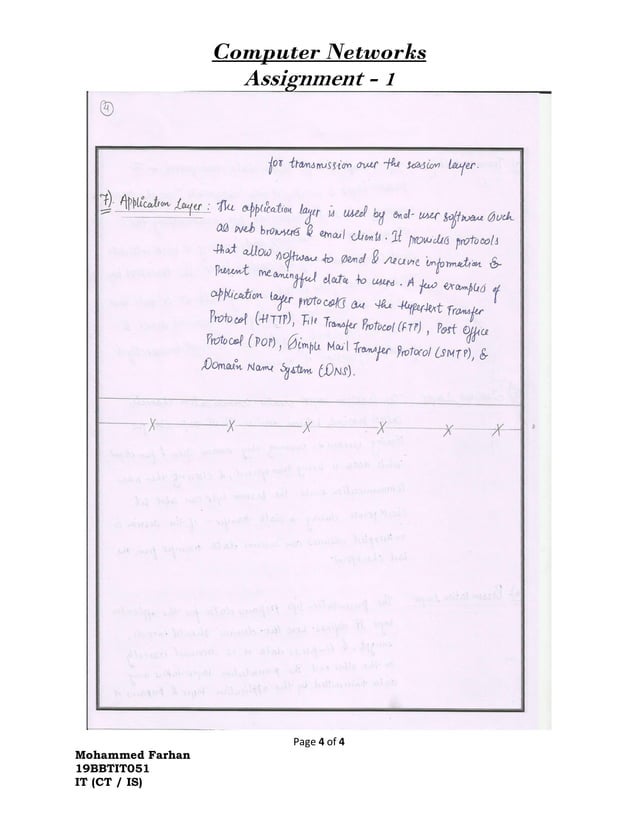 Computer Networks
Assignment - 1
4
for transmission over the session layer.
7). Application Layer : The application layer is used by end-user software such
as web browsers & email clients. It provides protocols
that allow software to send & receive information &
present meaningful data to users. A few examples of
application layer protocols are the Hypertext Transfer
Protocol (HTTP), File Transfer Protocol (FTP), Post Office
Protocol (POP), Simple Mail Transfer Protocol (SMTP), &
Domain Name System (DNS).
X X X X X X
Page 4 of 4
Mohammed Farhan
19BBTIT051
IT (CT / IS)